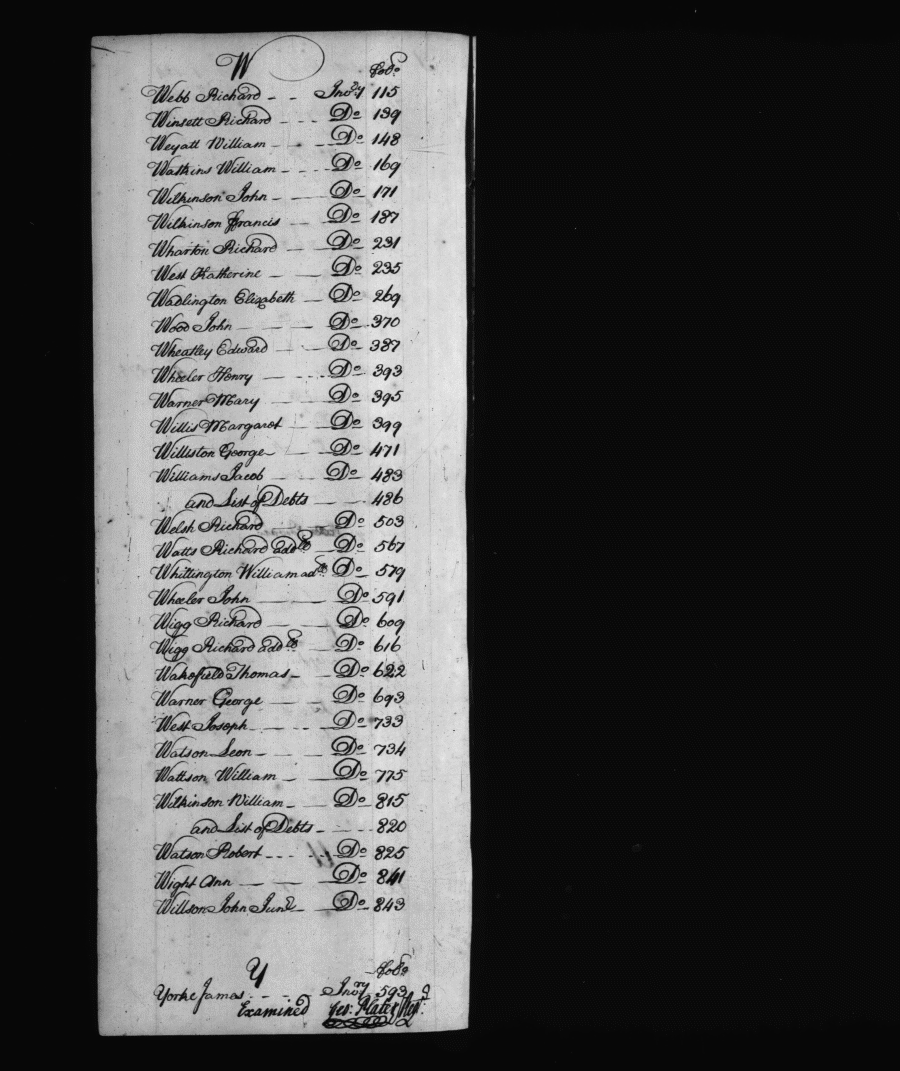 W
Fol:o
Webb Richard Inv:ry 115
Winsett Richard Do 139
Weyatt William Do 148
Watkins William Do 169
Wilkinson John Do 171
Wilkinson Francis Do 187
Wharton Richard Do 231
West Katherine Do 235
Wadlington Elizabeth Do 269
Wood John Do 370
Wheatley Edward Do 387
Wheeler Henry Do 393
Warner Mary Do 395
Willis Margaret Do 399
Williston George Do 471
Williams Jacob Do 483
and List of Debts 486
Welsh Richard Do 503
Watts Richard add Do 567
Whittington William ad Do 579
Wheeler John Do 591
Wigg Richard Do 609
Wigg Richard add Do 616
Wakefield Thomas Do 622
Warner George Do 693
West Joseph Do 733
Watson Leon Do 734
Wattson William Do 775
Wilkinson William Do 815
and List of Debts 820
Watson Robert Do 825
Wight Ann Do 841
Willson John Junr Do 843
Y
Fol:o
Yorke James Invry 593
Examined Geo: Plater Regr